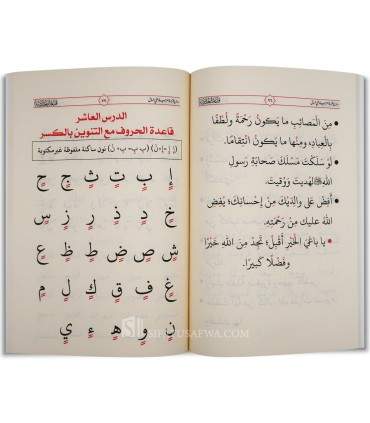 ٢٦
• مِنَ الْمَصَائِبِ مَا يَكُونُ رَحْمَةً وَلُطْفًا
بِالْعِبَادِ، وَمِنْهَا مَا يَكُونُ انْتِقَامًا.
• لَوْ سَلَكْتَ مَسْلَكَ صَحَابَةِ رَسُولِ
اللهِ ﷺ لَهُدِيتَ وَوُقِيتَ.
• أَفِضْ عَلَى وَالِدَيْكَ مِنْ إِحْسَانِكَ؛ يُفِضِ
اللهُ عَلَيْكَ مِنْ رَحْمَتِهِ.
• يَا بَاغِيَ الْخَيْرِ أَقْبِلْ؛ تَجِدْ مِنَ اللهِ خَيْرًا
وَفَضْلًا كَبِيرًا.
٢٧
الدرس العاشر
قاعدة الحروف مع التنوين بالكسر
نون ساكنة ملفوظة غير مكتوبة
إٍ بٍ تٍ ثٍ جٍ حٍ
خٍ دٍ ذٍ رٍ زٍ سٍ
شٍ صٍ ضٍ طٍ ظٍ عٍ
غٍ فٍ قٍ كٍ لٍ مٍ
نٍ وٍ هٍ ءٍ يٍ
SIFATUSAFWA.COM